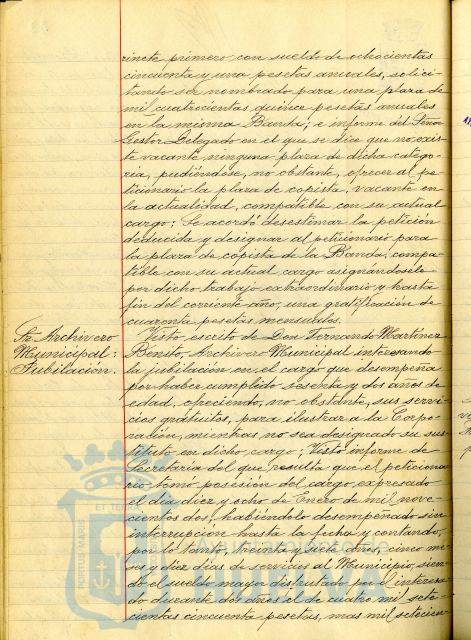 rinete primero con sueldo de ochocientas
cincuenta y una pesetas anuales, solici-
tando ser nombrado para una plaza de
mil cuatrocientas quince pesetas anuales
en la misma Banda; e informe del Señor
Gestor Delegado en el que se dice que no exis-
te vacante ninguna plaza de dicha catego-
ria, pudiéndose, no obstante, ofrecer al pe-
ticionario la plaza de copista, vacante en
la actualidad, compatible con su actual
cargo; Se acordó desestimar la petición
deducida y designar al peticionario para
la plaza de copista de la Banda, compa-
tible con su actual cargo asignándosele
por dicho trabajo extraordinario y hasta
fin del corriente año, una gratificación de
cuarenta pesetas mensuales.
Sr. Archivero
Municipal:
Jubilación.
Visto escrito de Don Fernando Martínez
Benito, Archivero Municipal interesando
la jubilación en el cargo que desempeña
por haber cumplido sesenta y dos años de
edad, ofreciendo, no obstante, sus servi-
cios gratuitos, para ilustrar a la Corpo-
ración, mientras no sea designado su sus-
tituto en dicho cargo; Visto informe de
Secretaria del que resulta que el peticiona-
rio tomó posesión del cargo expresado
el día diez y ocho de Enero de mil nove-
cientos dos, habiéndolo desempeñado sin
interrupción hasta la fecha y contando,
por lo tanto, treinta y siete años, cinco me-
ses y diez días de servicios al Municipio, sien-
do el sueldo mayor disfrutado por el interesa-
do durante dos años el de cuatro mil sete-
cientas cincuenta pesetas, mas mil setecien-
PORTUS MARIS
ET TERRAE
Ayuntamiento de